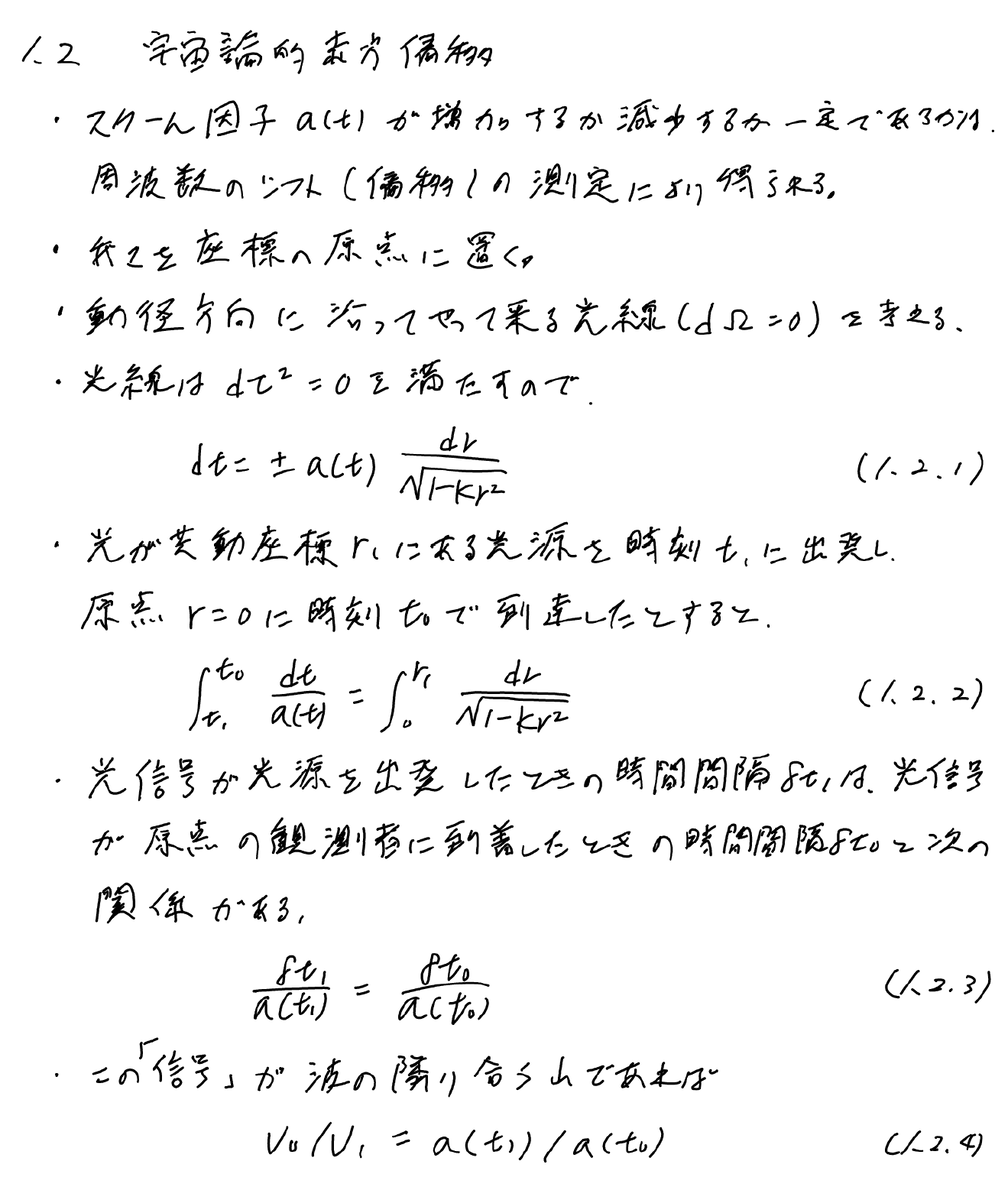 1.2 宇宙論的赤方偏移
・スケール因子 a(t) が増加するか減少するか一定であるかは、
周波数のシフト(偏移)の測定により得られる。
・我々を座標の原点に置く。
・動径方向に沿ってやって来る光線(dΩ=0)を考える。
・光線は dτ²=0 を満たすので、
dt = ± a(t) dr/√(1-Kr²) (1.2.1)
・光が共動座標 r₁ にある光源を時刻 t₁ に出発し、
原点 r=0 に時刻 t₀ で到達したとすると、
∫_{t₁}^{t₀} dt/a(t) = ∫_0^{r₁} dr/√(1-Kr²) (1.2.2)
・光信号が光源を出発したときの時間間隔 δt₁ は、光信号
が原点の観測者に到着したときの時間間隔 δt₀ と次の
関係がある、
δt₁/a(t₁) = δt₀/a(t₀) (1.2.3)
・この「信号」が波の隣り合う山であれば
ν₀/ν₁ = a(t₁)/a(t₀) (1.2.4)